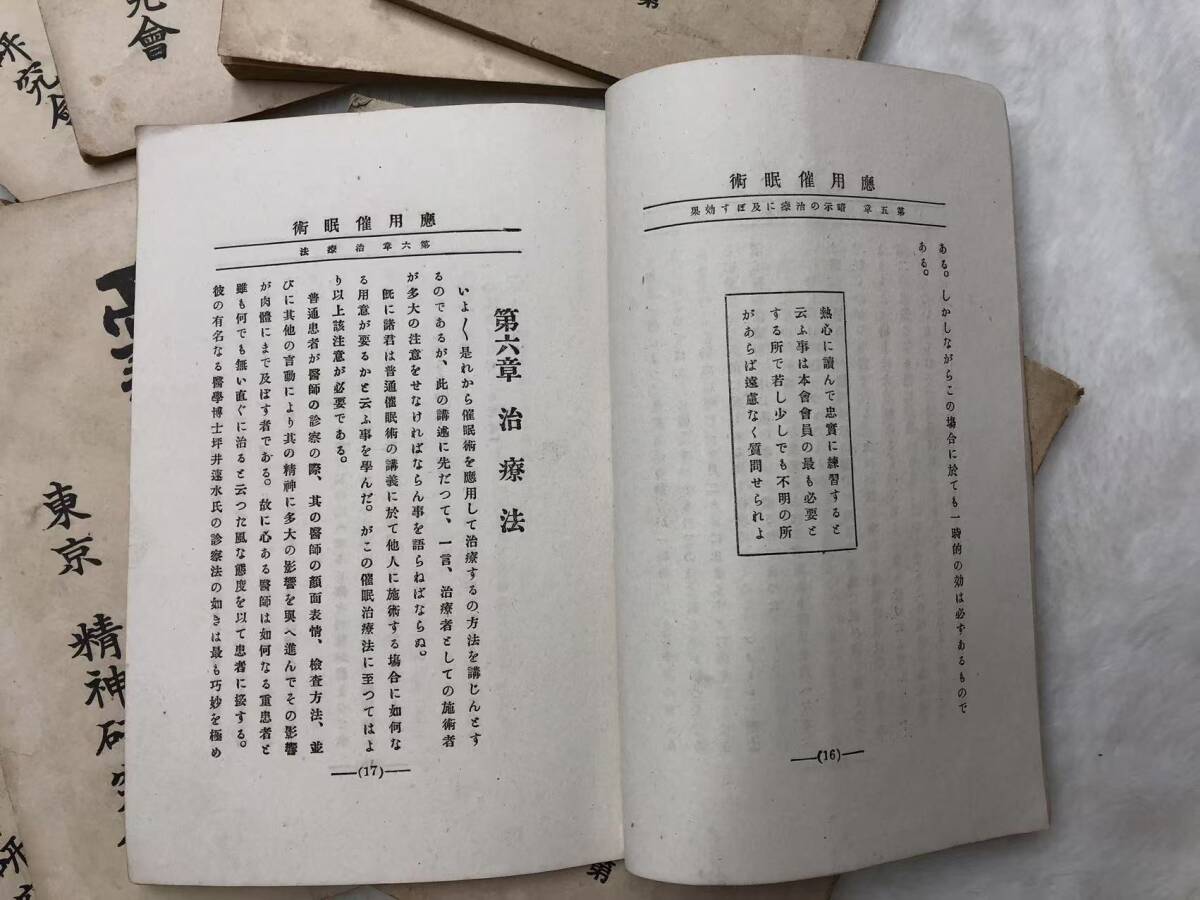 術眠催用應
果効すぼ及に療治の示暗 章五第
ある。しかしながらこの塲合に於ても一時的の効は必ずあるもので
ある。
熱心に讀んで忠實に練習すると
云ふ事は本會會員の最も必要と
する所で若し少しでも不明の所
があらば遠慮なく質問せられよ
(16)
術眠催用應
法療治章六第
第六章 治療法
いよ〳〵是れから催眠術を應用して治療するの方法を講じんとす
るのであるが、此の講述に先だつて、一言、治療者としての施術者
が多大の注意をせなければならん事を語らねばならぬ。
既に諸君は普通催眠術の講義に於て他人に施術する塲合に如何な
る用意が要るかと云ふ事を學んだ。がこの催眠治療法に至つてはよ
り以上該注意が必要である。
普通患者が醫師の診察の際、其の醫師の顏面表情、檢査方法、並
びに其他の言動により其の精神に多大の影響を與へ進んでその影響
が肉體にまで及ぼす者である。故に心ある醫師は如何なる重患者と
雖も何でも無い直ぐに治ると云つた風な態度を以て患者に接する。
彼の有名なる醫學博士坪井速水氏の診察法の如きは最も巧妙を極め
(17)
東京 精神研究
究會
研究會
第
研究
第